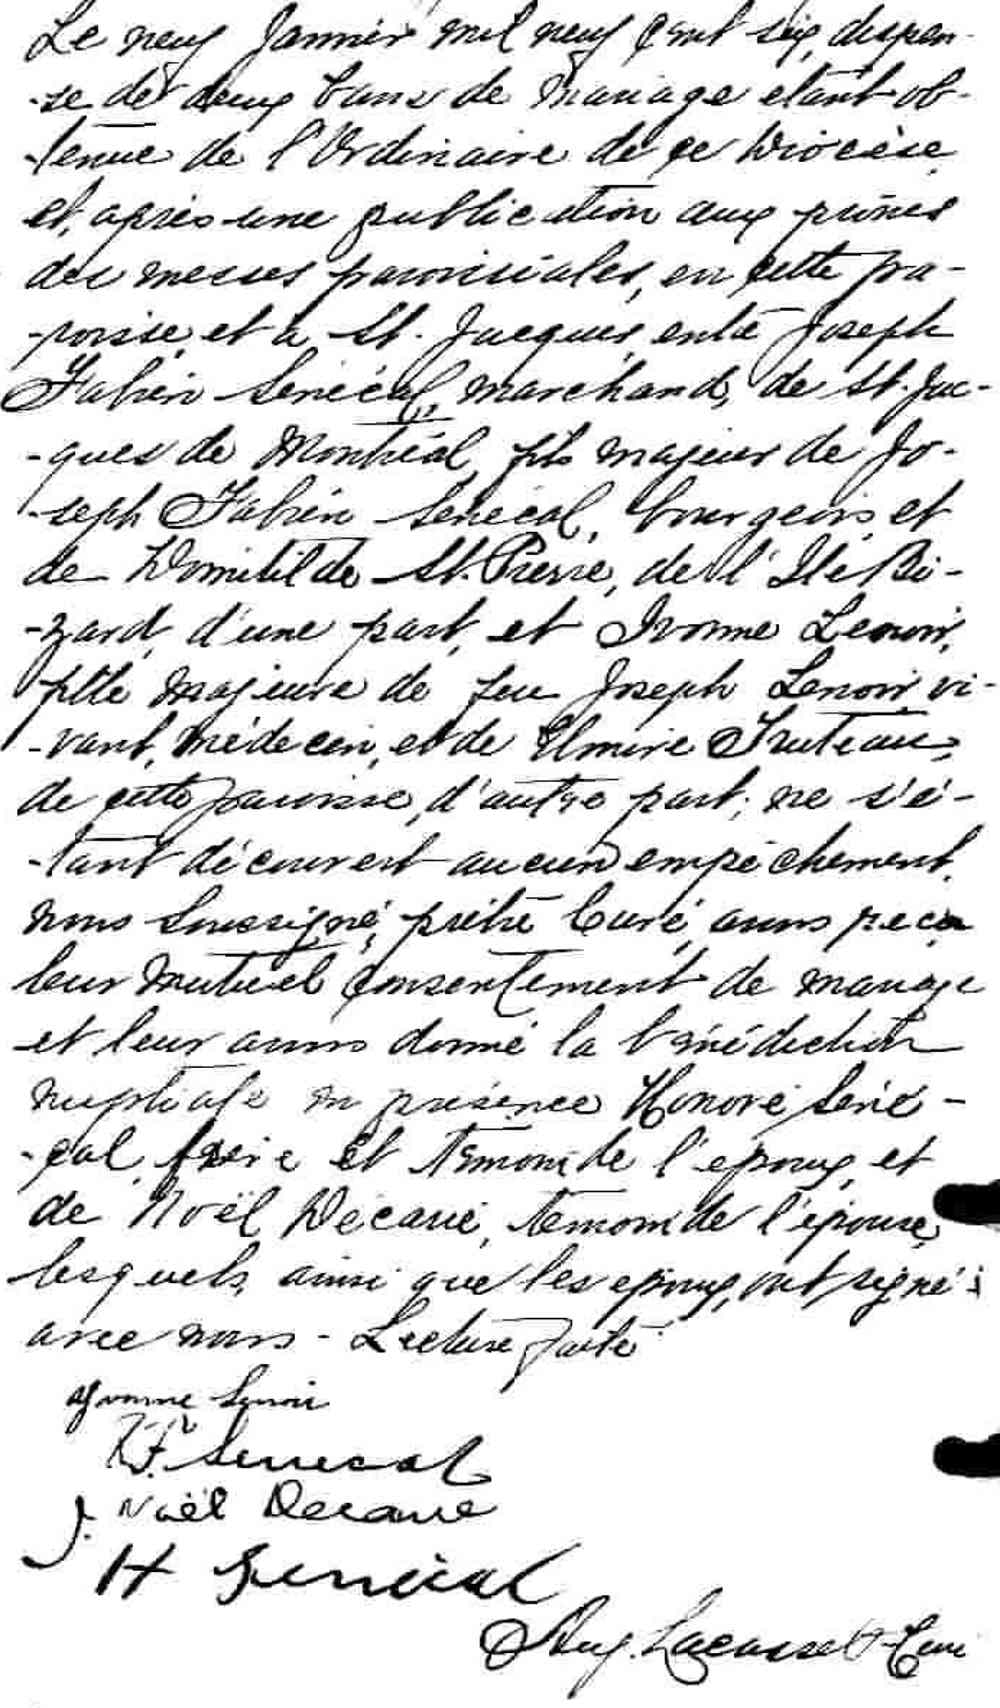 Le neuf Janvier mil neuf cent six, dispen-
-se de deux bans de mariage étant ob-
-tenue de l'Ordinaire de ce Diocèse
et, après une publication aux prônes
des messes paroissiales, en cette pa-
-roisse et à St. Jacques entre Joseph
Fabien Senécal, marchand, de St. Jac-
-ques de Montréal, fils majeur de Jo-
-seph Fabien Senécal, bourgeois et
de Domitilde St. Pierre, de l'Ile Bi-
-zard, d'une part, et Ivonne Lenoir,
fille majeure de feu Joseph Lenoir, vi-
-vant, médecin, et de Elmire Truteau,
de cette paroisse, d'autre part; ne s'é-
-tant découvert aucun empêchement,
nous soussigné, prêtre Curé, avons reçu
leur mutuel consentement de mariage
et leur avons donné la bénédiction
nuptiale en présence Honoré Séné-
-cal, frère et témoin de l'époux, et
de Noël Décarie, témoin de l'épouse,
lesquels, ainsi que les époux, ont signé
avec nous - Lecture faite
Yvonne Lenoir
J.F. Senecal
J. Noël Decarie
H Senécal
Aug. Lacasse Curé